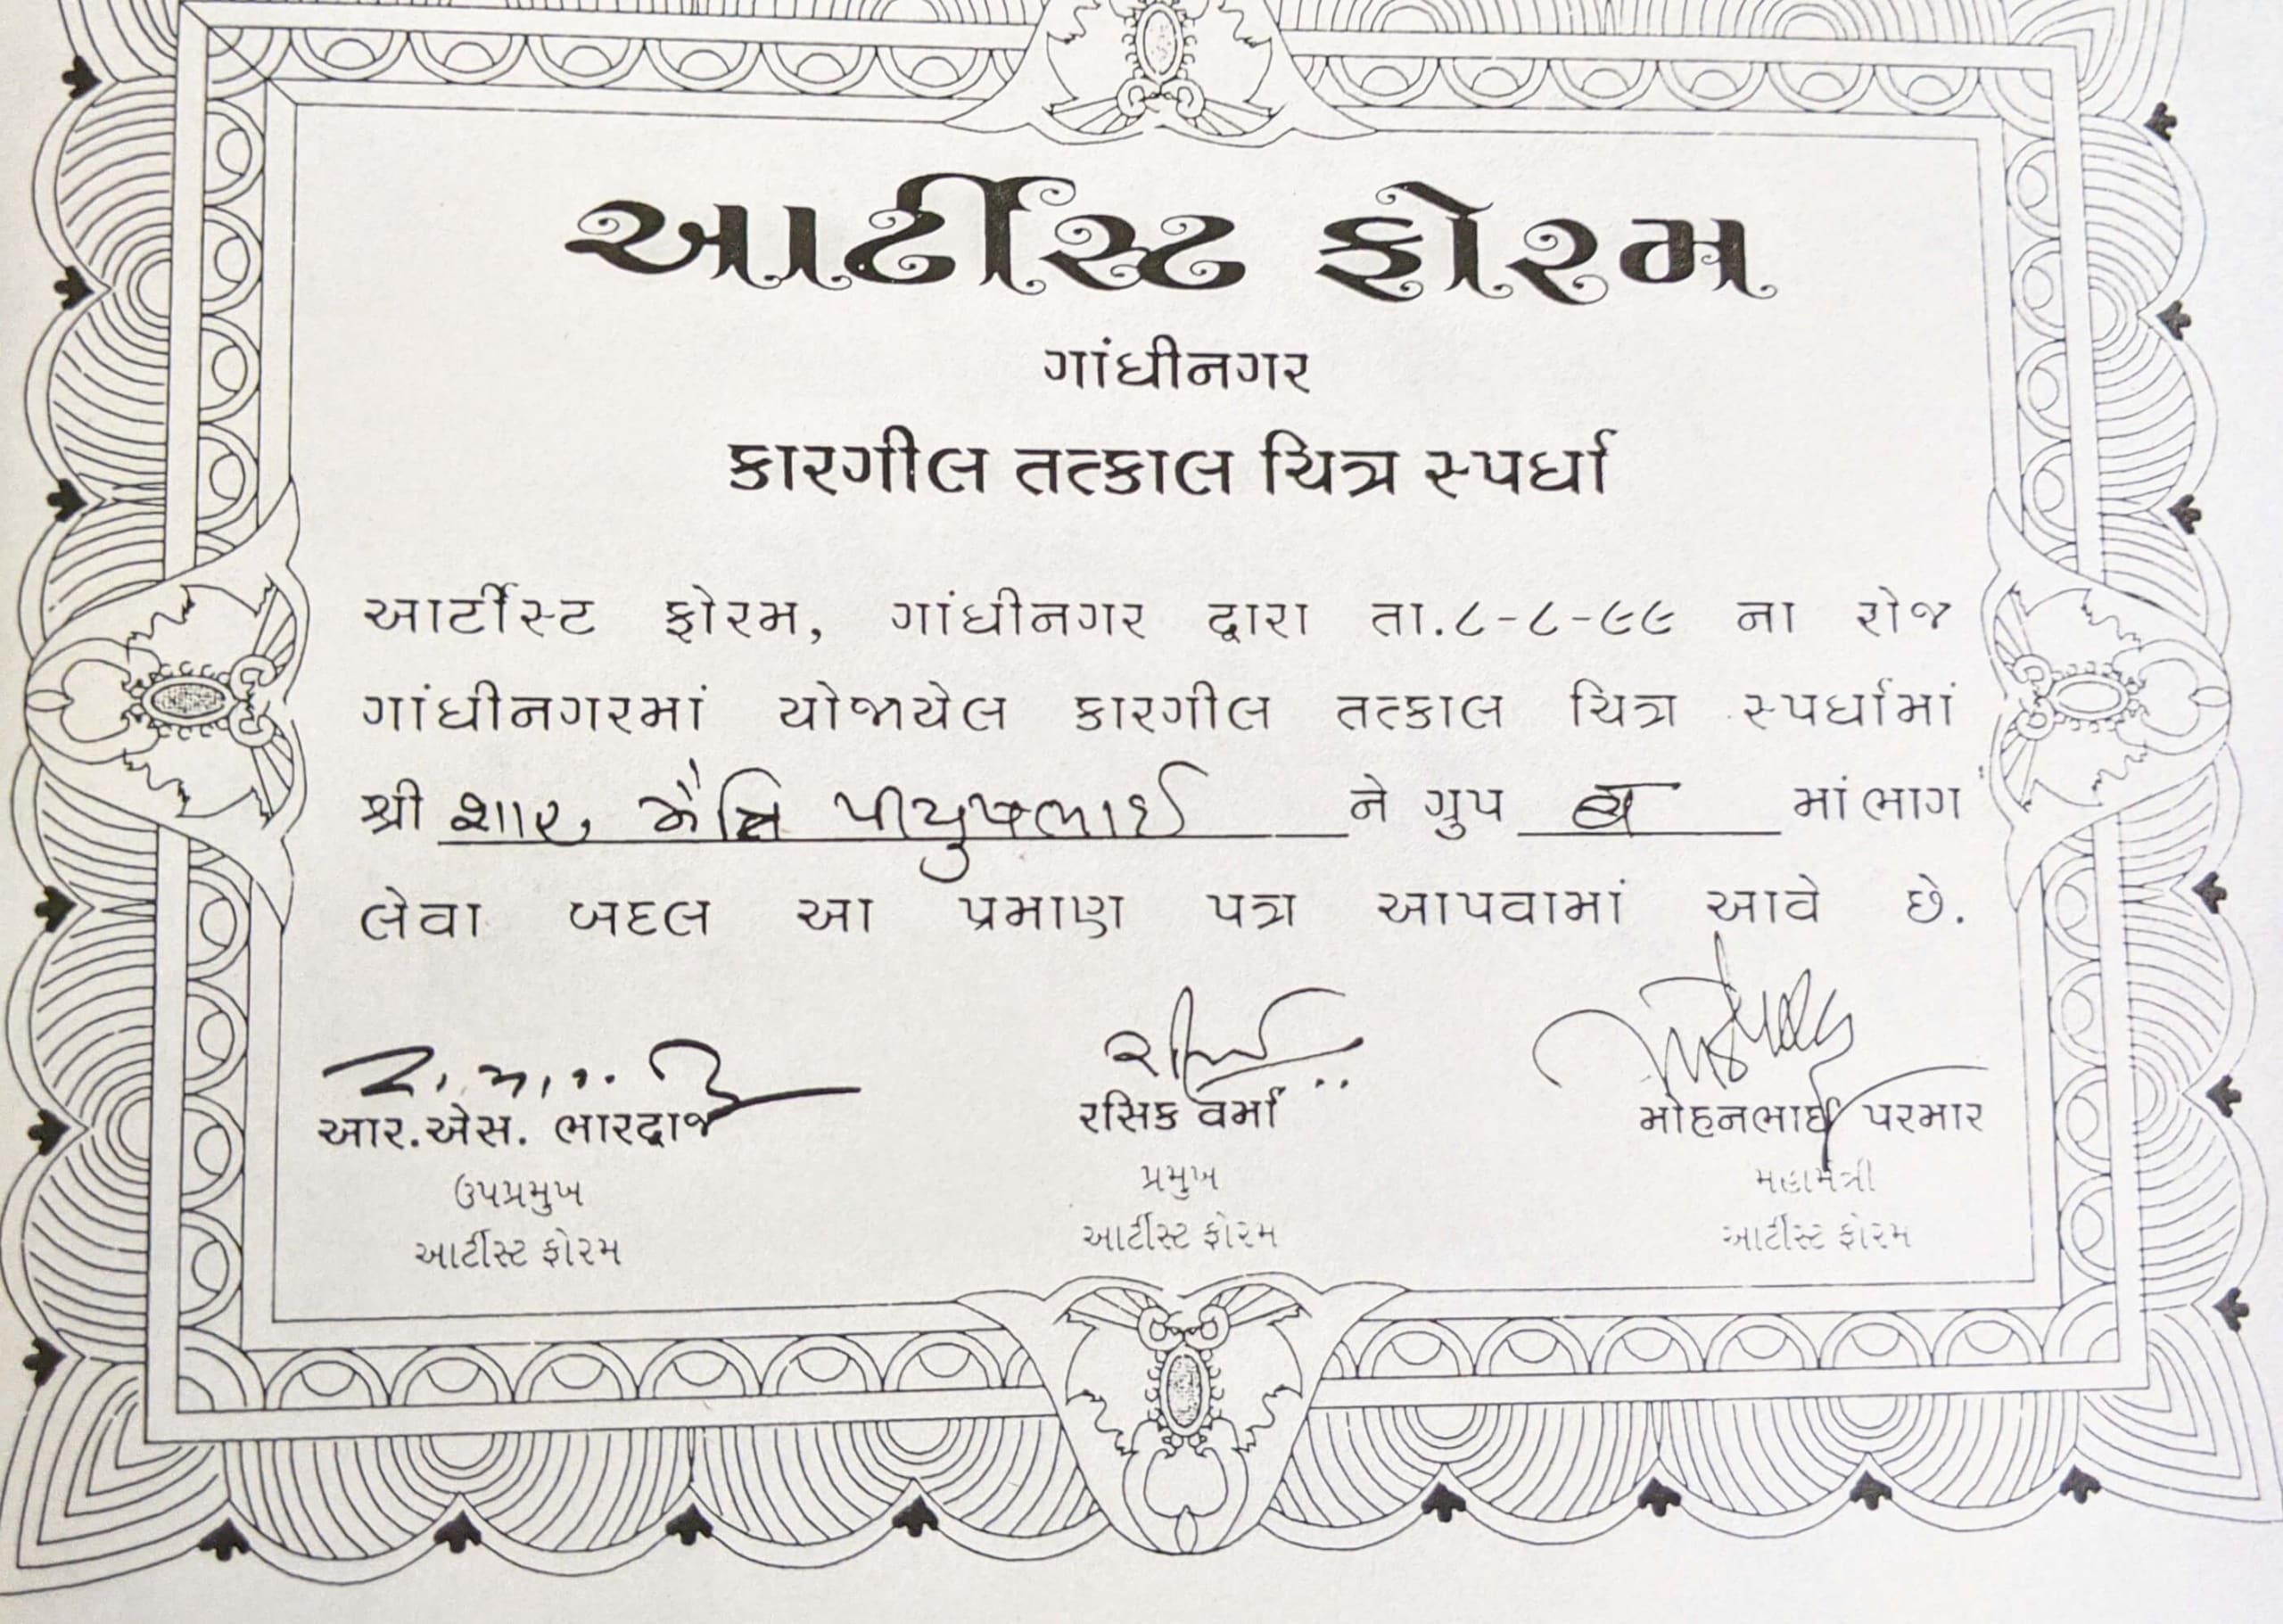 આર્ટીસ્ટ ફોરમ
ગાંધીનગર
કારગીલ તત્કાલ ચિત્ર સ્પર્ધા
આર્ટીસ્ટ ફોરમ, ગાંધીનગર દ્વારા તા.૮-૮-૯૯ ના રોજ
ગાંધીનગરમાં યોજાયેલ કારગીલ તત્કાલ ચિત્ર સ્પર્ધામાં
શ્રી શાહ, પીયુષભાઈ ને ગ્રુપ માં ભાગ
લેવા બદલ આ પ્રમાણ પત્ર આપવામાં આવે છે.
આર.એસ. ભારદ્વાજ રસિક વર્મા મોહનભાઈ પરમાર
ઉપપ્રમુખ પ્રમુખ મહામંત્રી
આર્ટીસ્ટ ફોરમ આર્ટીસ્ટ ફોરમ આર્ટીસ્ટ ફોરમ